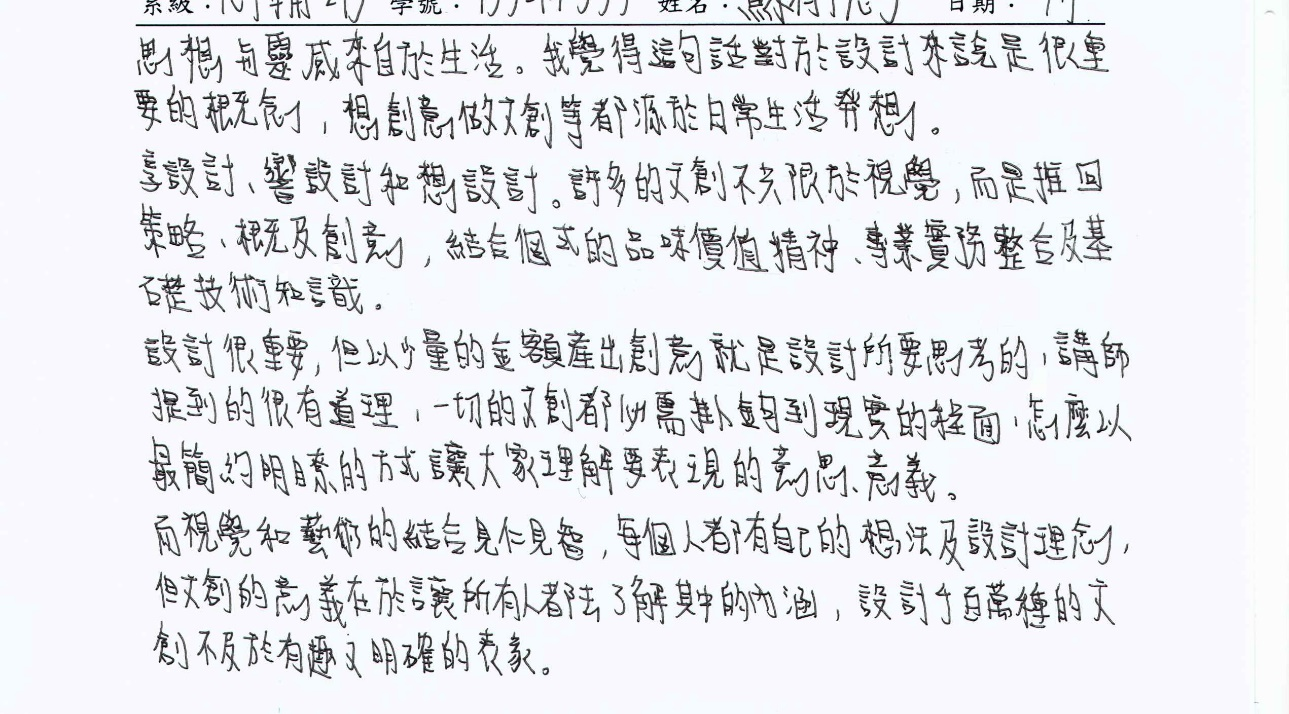 系級： 學號： 姓名： 日期：
思想与靈感來自於生活。我覺得這句話對於設計來說是很重
要的概念，想創意做文創等都源於日常生活發想。
享設計、響設計和想設計。許多的文創不只限於視覺，而是推回
策略、概念及創意，結合個式的品味價值精神、專業實務整合及基
礎技術知識。
設計很重要，但以少量的金額產出創意就是設計所要思考的，講師
提到的很有道理，一切的文創都必需掛鉤到現實的程面，怎麼以
最簡約明瞭的方式讓大家理解要表現的意思、意義。
而視覺和藝術的結合見仁見智，每個人都有自己的想法及設計理念，
但文創的意義在於讓所有人都去了解其中的內涵，設計千百萬種的文
創不及於有趣又明確的表象。